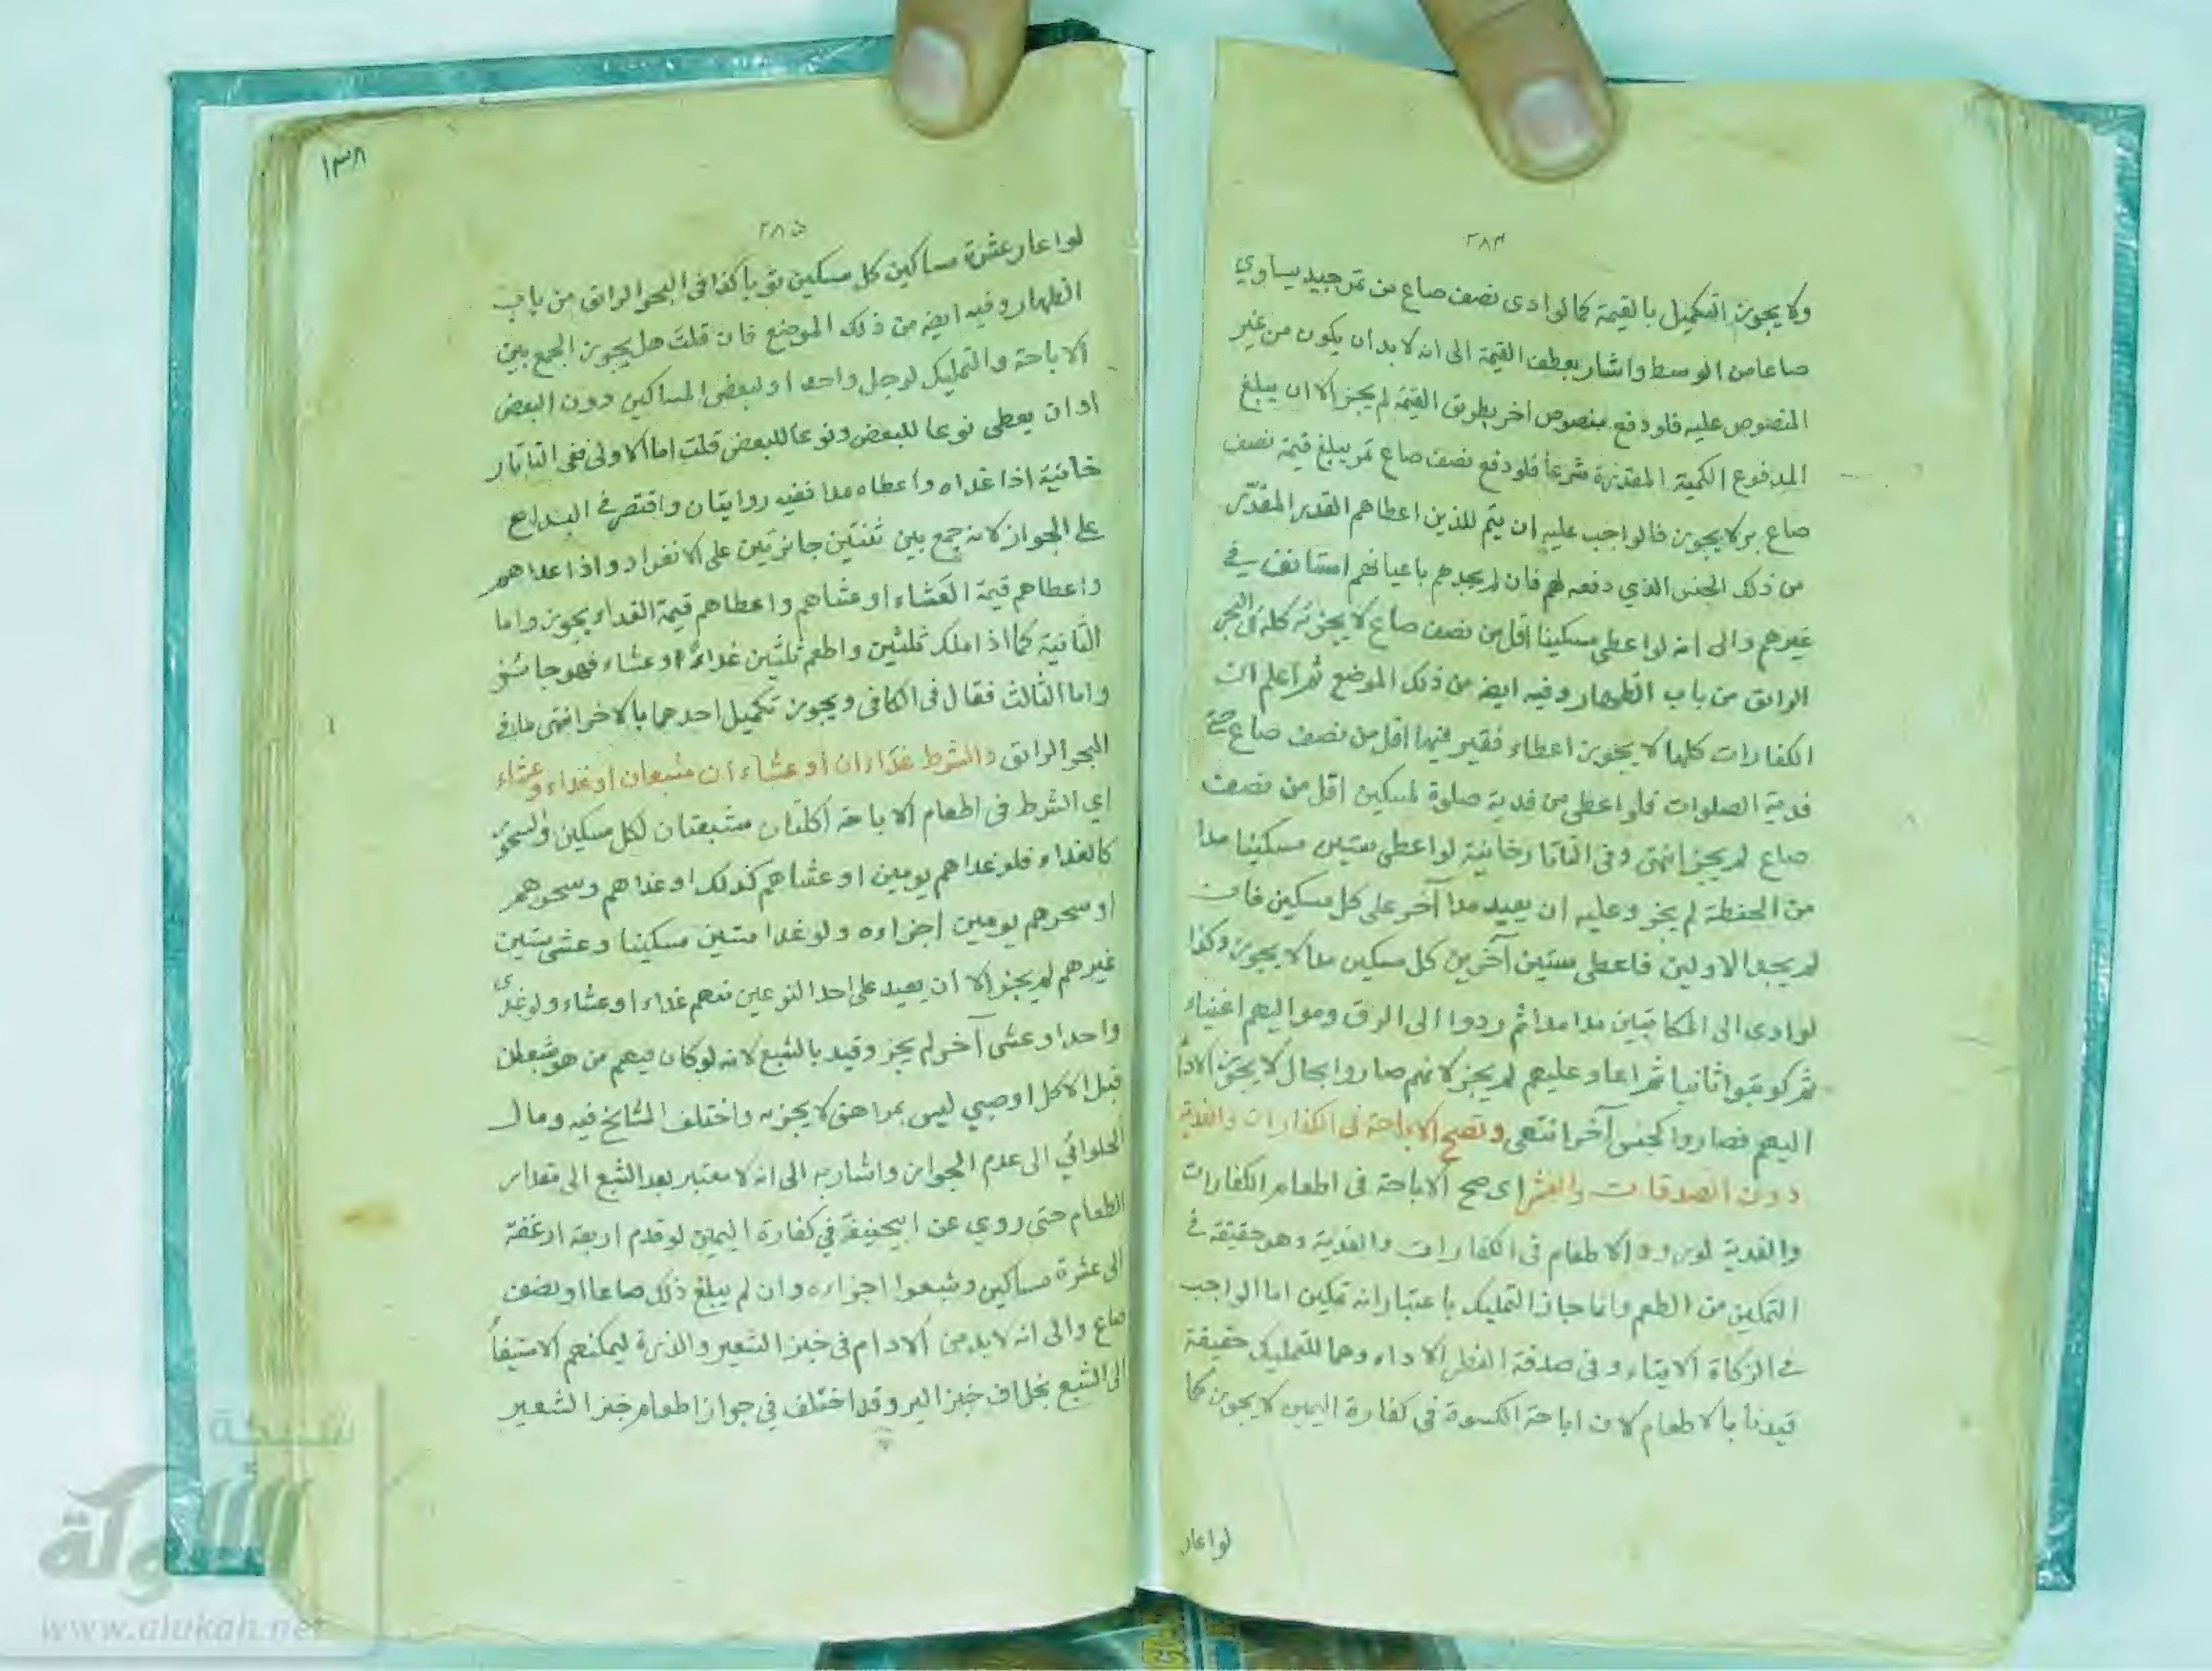 ٢٨٤
ولا يجوز التكميل بالقيمة كما لو ادى نصف صاع من تمر جيد يساوي
صاعا من الوسط واشار بعطف القيمة الى انه لا بد ان يكون من غير
المنصوص عليه فلو دفع منصوص اخر بطريق القيمة لم يجز الا ان يبلغ
المدفوع الكمية المقدرة شرعا فلو دفع نصف صاع تمر يبلغ قيمة نصف
صاع بر لا يجوز فالواجب عليه ان يتم للذين اعطاهم القدر المقدر
من ذلك الجنس الذي دفعه لهم فان لم يجدهم باعيانهم استانف في
غيرهم والى انه لو اعطى مسكينا اقل من نصف صاع لا يجوز كله في البحر
الرائق من باب الظهار وفيه ايضا من ذلك الموضع ثم اعلم ان
الكفارات كلها لا يجوز اعطاء فقير فيها اقل من نصف صاع حتى
فدية الصلوات فلو اعطى من فدية صلوة لمسكين اقل من نصف
صاع لم يجز انتهى وفي التاتارخانية لو اعطى ستين مسكينا مدا
من الحنطة لم يجز وعليه ان يعيد مدا آخر على كل مسكين فان
لم يجد الاولين فاعطى ستين آخرين كل مسكين مدا لا يجوز وكذا
لو ادى الى المكاتبين مدا مدا ثم ردوا الى الرق ومواليهم اغنياء
ثم كوتبوا ثانيا ثم اعاد عليهم لم يجز لانهم صاروا بحال لا يجوز الاداء
اليهم فصاروا كجنس آخر انتهى وتصح الاباحة في الكفارات والفدية
دون الصدقات والعشر اي صح الاباحة في اطعام الكفارات
والفدية لورود الاطعام في الكفارات والفدية وهو حقيقة في
التمكين من الطعم وانما جاز التمليك باعتبار انه تمكين اما الواجب
في الزكاة الايتاء وفي صدقة الفطر الاداء وهما للتمليك حقيقة
قيدنا بالاطعام لان اباحة الكسوة في كفارة اليمين لا يجوز كما
لو اعار
١٣٨
٢٨٥
لو اعار عشرة مساكين كل مسكين ثوبا كذا في البحر الرائق من باب
الظهار وفيه ايضا من ذلك الموضع فان قلت هل يجوز الجمع بين
الاباحة والتمليك لرجل واحد او لبعض المساكين دون البعض
او ان يعطى نوعا للبعض ونوعا للبعض قلت اما الاولى ففي التاتار
خانية اذا غداه واعطاه مدا ففيه روايتان واقتصر في البدايع
على الجواز لانه جمع بين شيئين جائزين على الانفراد واذا غداهم
واعطاهم قيمة العشاء او عشاهم واعطاهم قيمة الغداء يجوز واما
الثانية كما اذا ملك ثلثين واطعم ثلثين غداء او عشاء فهو جائز
واما الثالث فقال في الكافي ويجوز تكميل احدهما بالاخر انتهى ما في
البحر الرائق والشرط غداءان او عشاءان مشبعان او غداء وعشاء
اي الشرط في اطعام الاباحة اكلتان مشبعتان لكل مسكين والسحور
كالغداء فلو غداهم يومين او عشاهم كذلك او غداهم وسحرهم
او سحرهم يومين اجزاءه ولو غدا ستين مسكينا وعشى ستين
غيرهم لم يجز الا ان يعيد على احد النوعين منهم غداء او عشاء ولو غدى
واحدا وعشى آخر لم يجز وقيد بالشبع لانه لو كان فيهم من هو شبعان
قبل الاكل او صبي ليس بمراهق لا يجزيه واختلف المشايخ فيه ومال
الحلوائي الى عدم الجواز واشار به الى انه لا معتبر بعد الشبع الى مقدار
الطعام حتى روي عن ابيحنيفة في كفارة اليمين لو قدم اربعة ارغفة
الى عشرة مساكين وشبعوا اجزاءه وان لم يبلغ ذلك صاعا او نصف
صاع والى انه لا بد من الادام في خبز الشعير والذرة ليمكنهم الاستيفاء
الى الشبع بخلاف خبز البر وقد اختلف في جواز اطعام خبز الشعير
شبكة
الألوكة
www.alukah.net